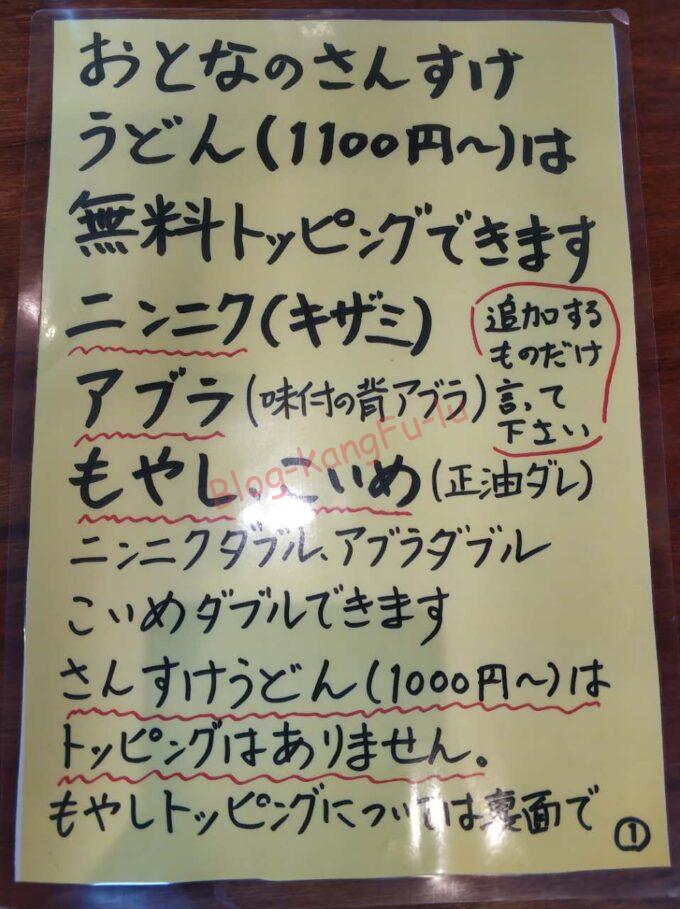 おとなのさんすけ
うどん(1100円〜)は
無料トッピングできます
ニンニク(キザミ)
アブラ(味付の背アブラ)
もやし、こいめ(正油ダレ)
追加する
ものだけ
言って
下さい
ニンニクダブル、アブラダブル
こいめダブルできます
さんすけうどん(1000円〜)は
トッピングはありません。
もやしトッピングについては裏面で
①
Blog-KangFu-lu